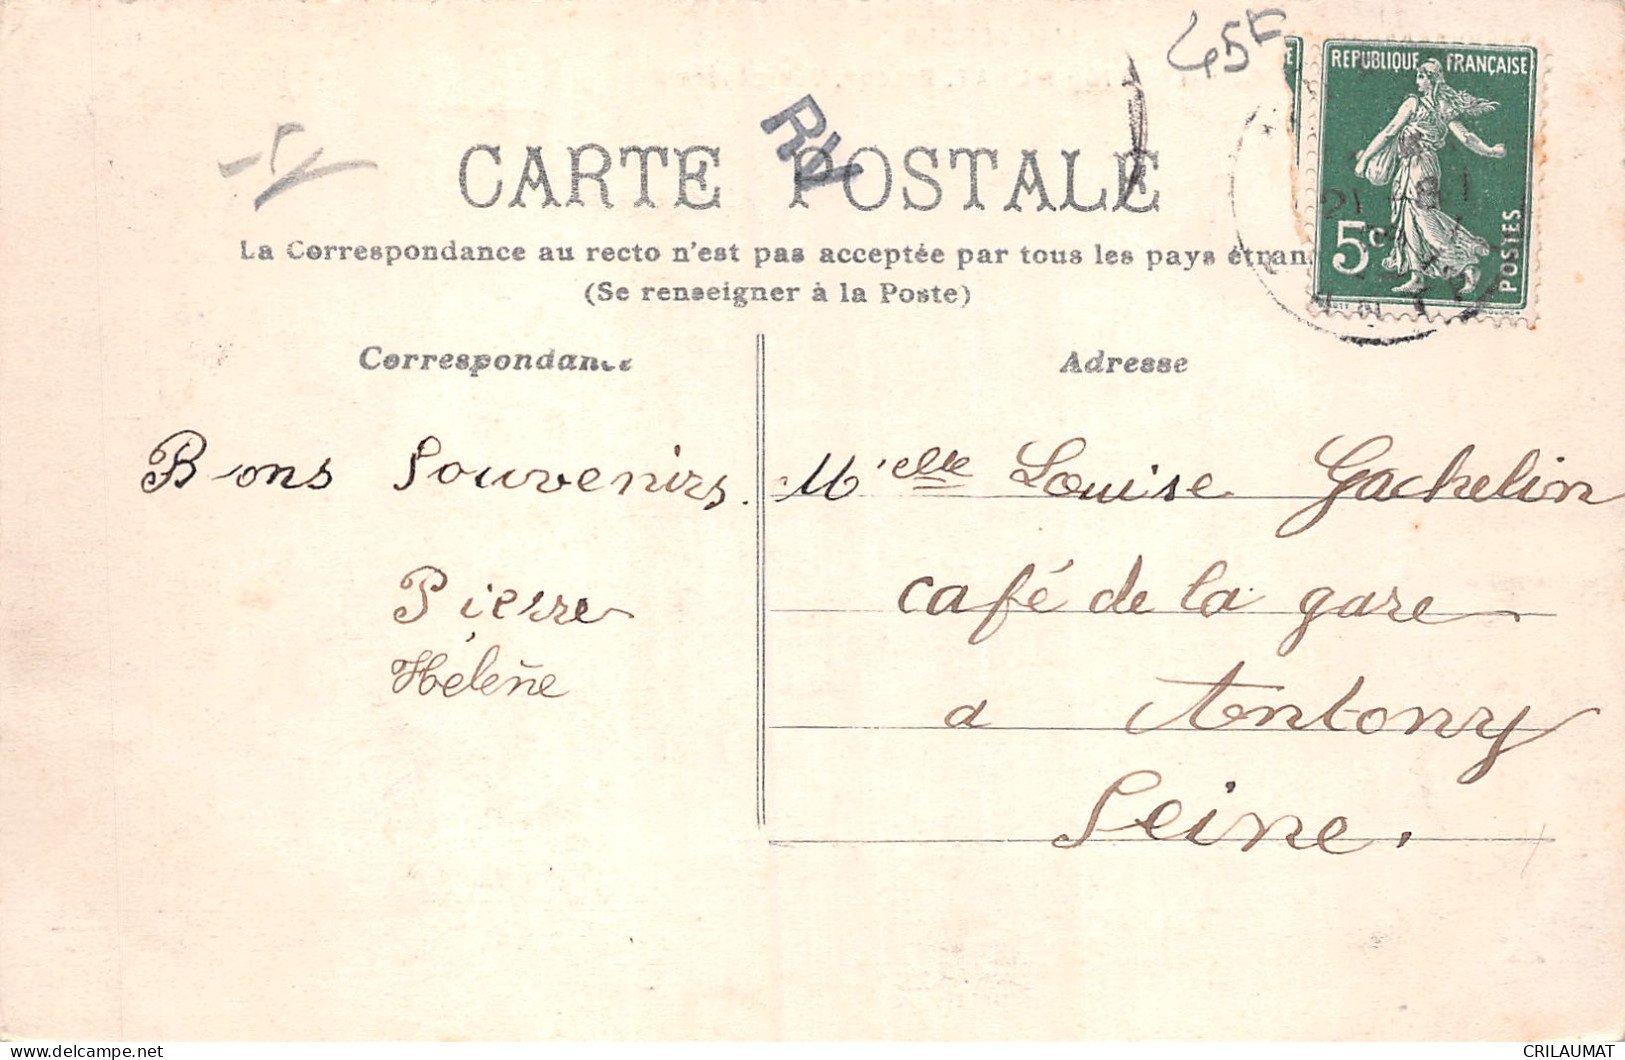 45F
REPUBLIQUE FRANÇAISE
5c
POSTES
CARTE POSTALE
La Correspondance au recto n'est pas acceptée par tous les pays étran
(Se renseigner à la Poste)
Correspondance
Adresse
Bons Souvenirs.
Pierre
Hélène
Melle Louise Gachelin
café de la gare
a Antony
Seine.
CRILAUMAT